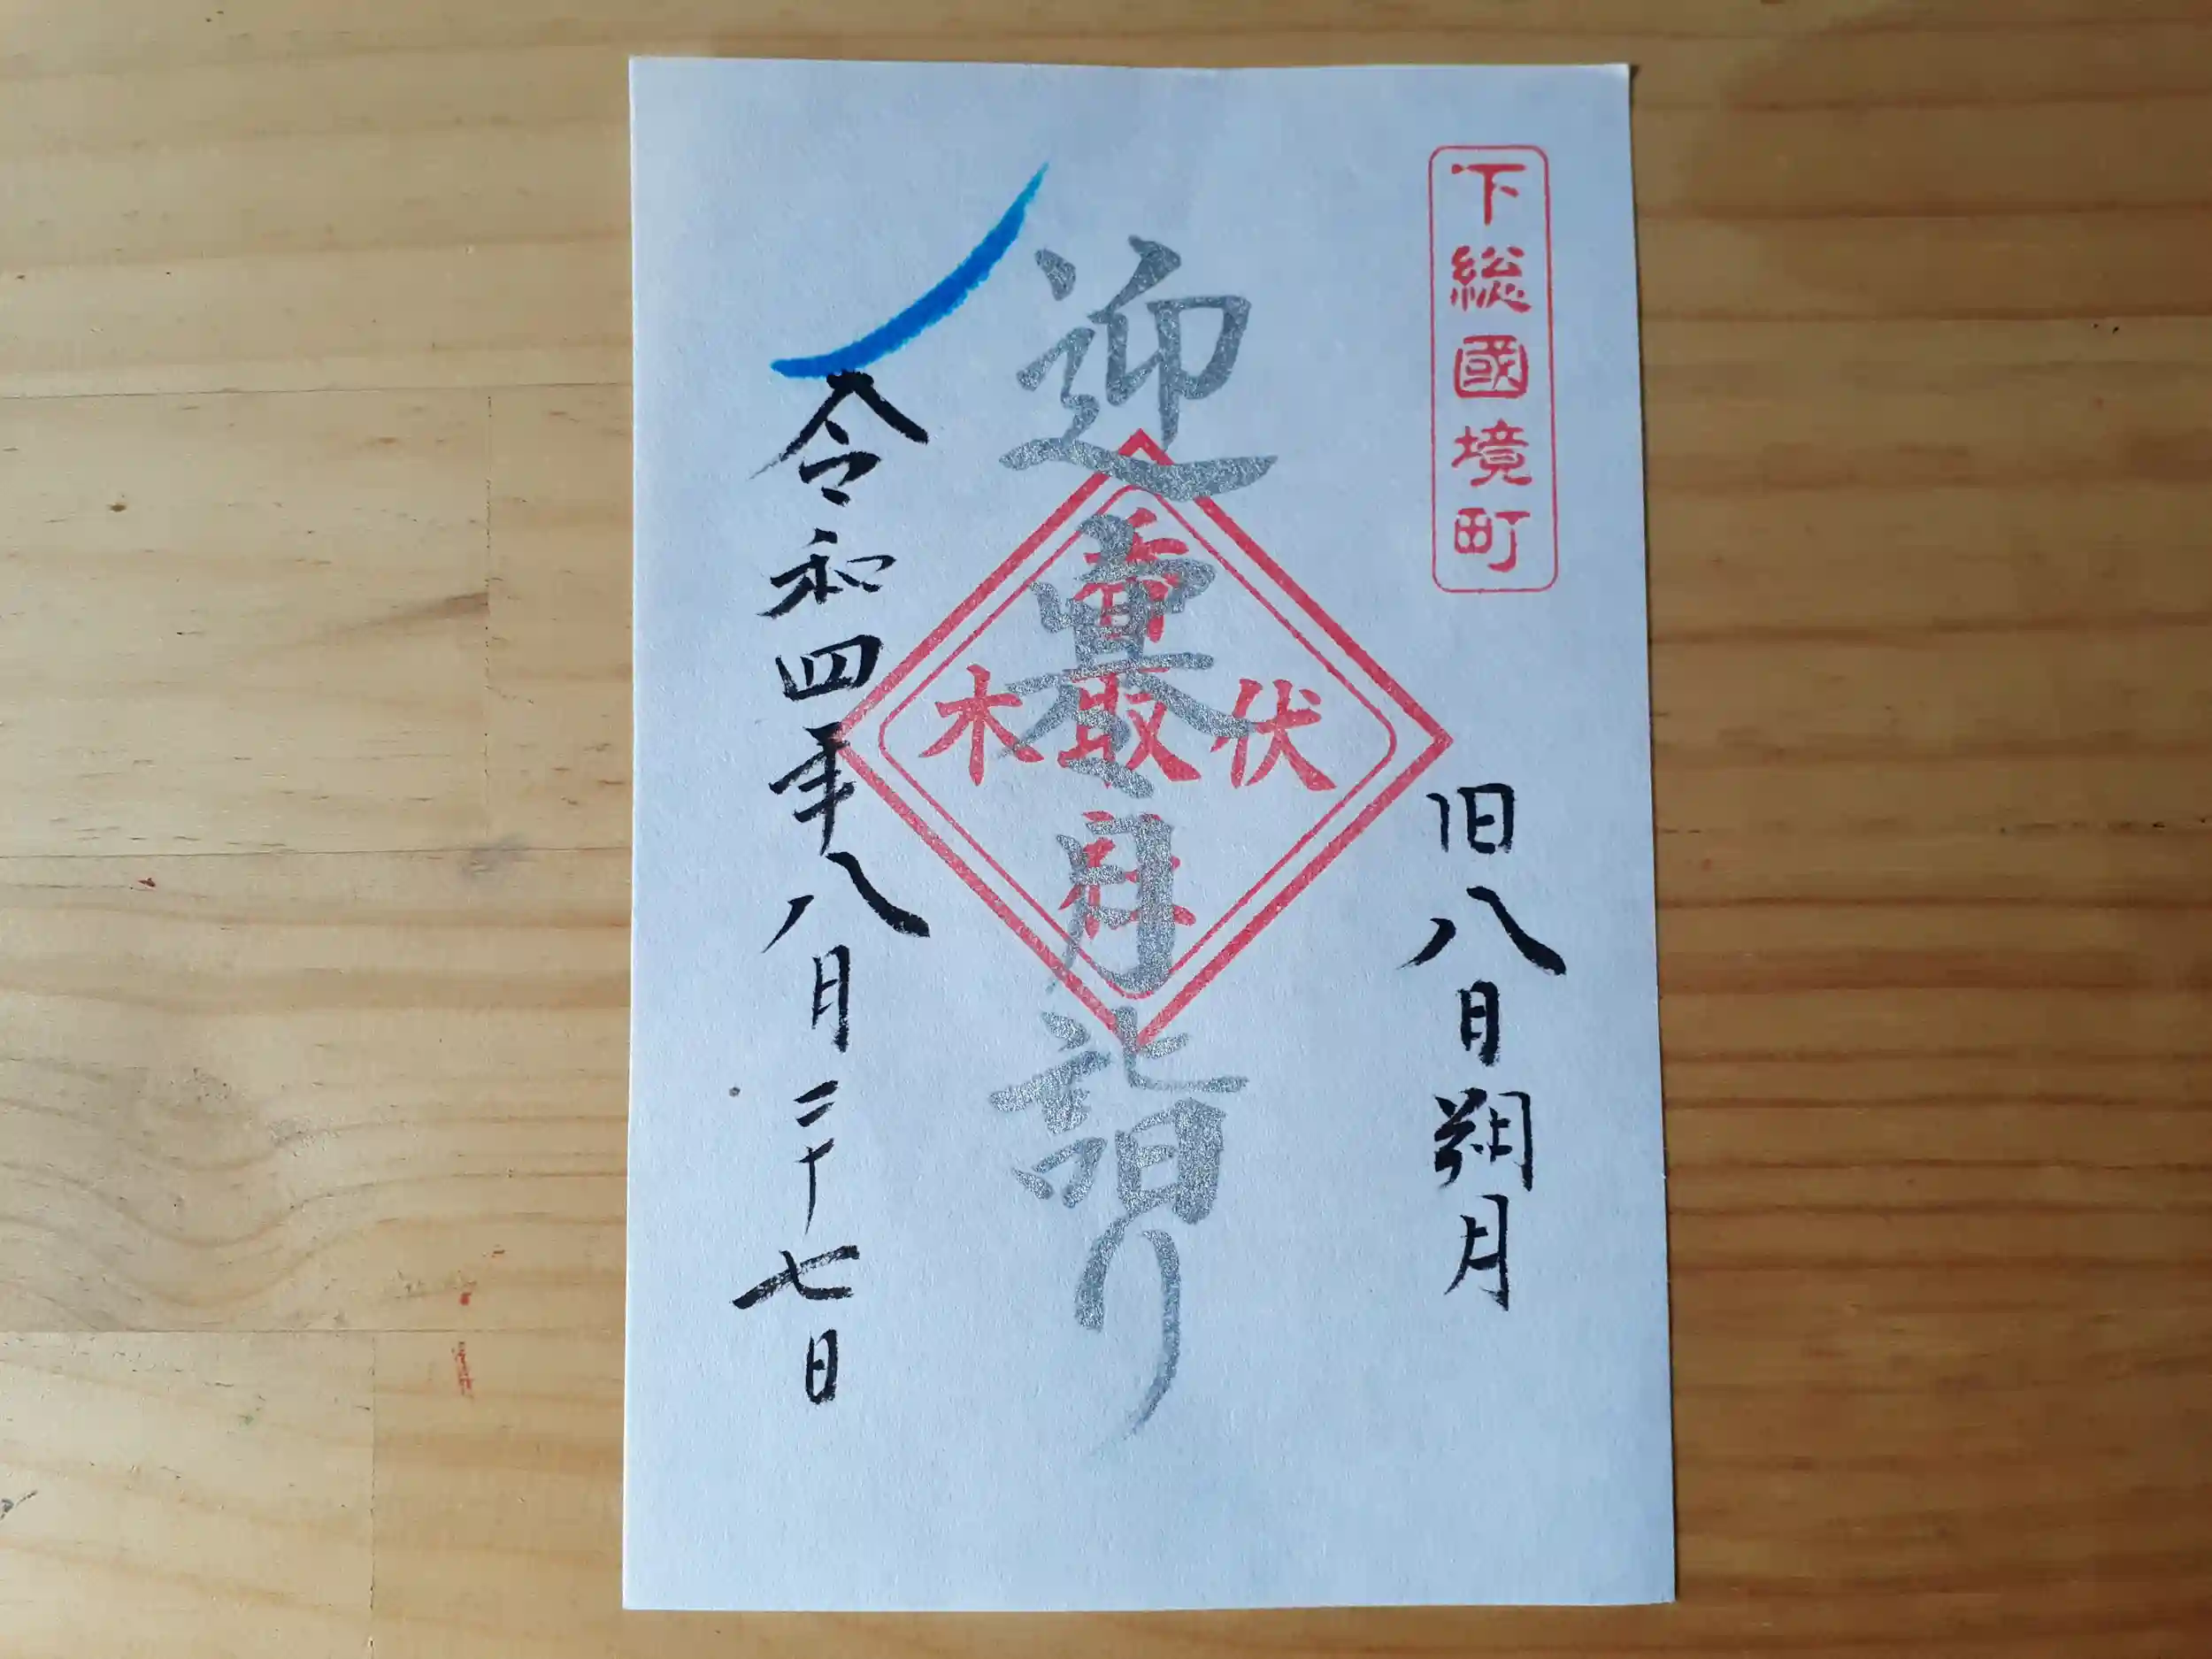 下総國境町
旧八日朔月
迎寒月詣り
香取社
伏木
令和四年八月二十七日